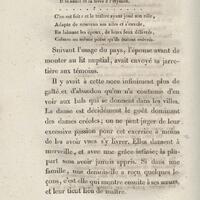 C'en est fait : et le traître ayant joué son rôle,
Adapte de nouveau ses ailes et s'envole,
En laissant les époux, de leurs feux délivrés,
Comme au même point qu'ils étaient enivrés.
Suivant l'usage du pays, l'épouse avant de
monter au lit nuptial, avait envoyé sa jarre-
tière aux témoins.
Il y avait à cette noce infiniment plus de
gaîté et d'abandon qu'on n'a coutume d'en
voir aux bals qui se donnent dans les villes.
La danse est décidément le goût dominant
des dames créoles ; on ne peut juger de leur
excessive passion pour cet exercice à moins
de les avoir vues s'y livrer. Elles dansent à
merveille, et avec une grâce infinie ; la plu-
part sans avoir jamais appris. Si dans une
famille, une demoiselle a reçu quelques le-
çons, c'est elle qui montre ensuite à ses sœurs,
et leur tient lieu de maître.